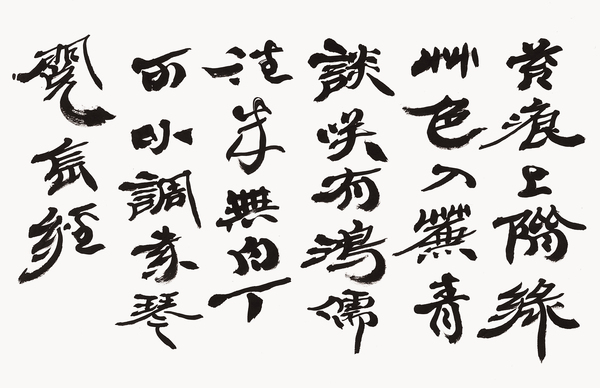 苔痕上階綠
艸色入簾青
談咲有鴻儒
往来無白丁
可以調素琴
閱金經